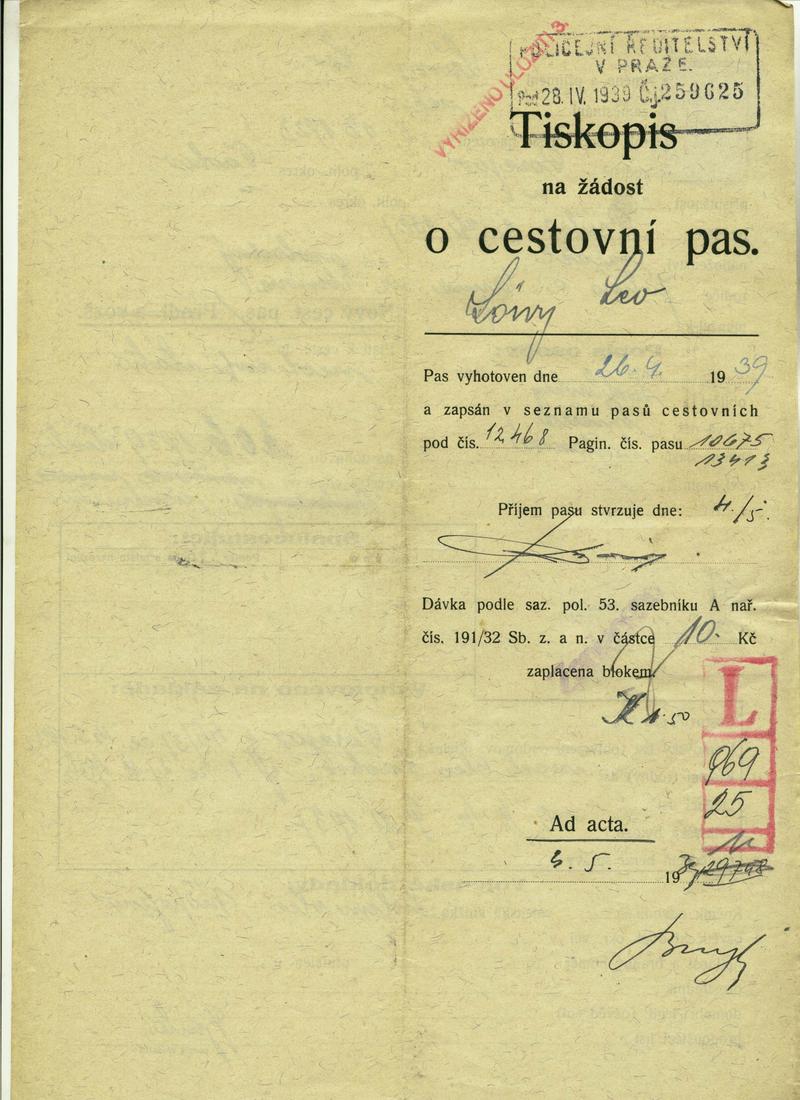 VYŘÍZENO ULOŽIT
POLICEJNÍ ŘEDITELSTVÍ
V PRAZE.
28. IV. 1939 Čj. 259625
Tiskopis
na žádost
o cestovní pas.
Löwy Leo
Pas vyhotoven dne 26. 4. 1939
a zapsán v seznamu pasů cestovních
pod čís. 12468 Pagin. čís. pasu 10675
13413
Příjem pasu stvrzuje dne: 4./5.
Dávka podle saz. pol. 53. sazebníku A nař.
čís. 191/32 Sb. z. a n. v částce 10. Kč
zaplacena blokem.
K 1.50
L
969
25
Ad acta.
5. 19